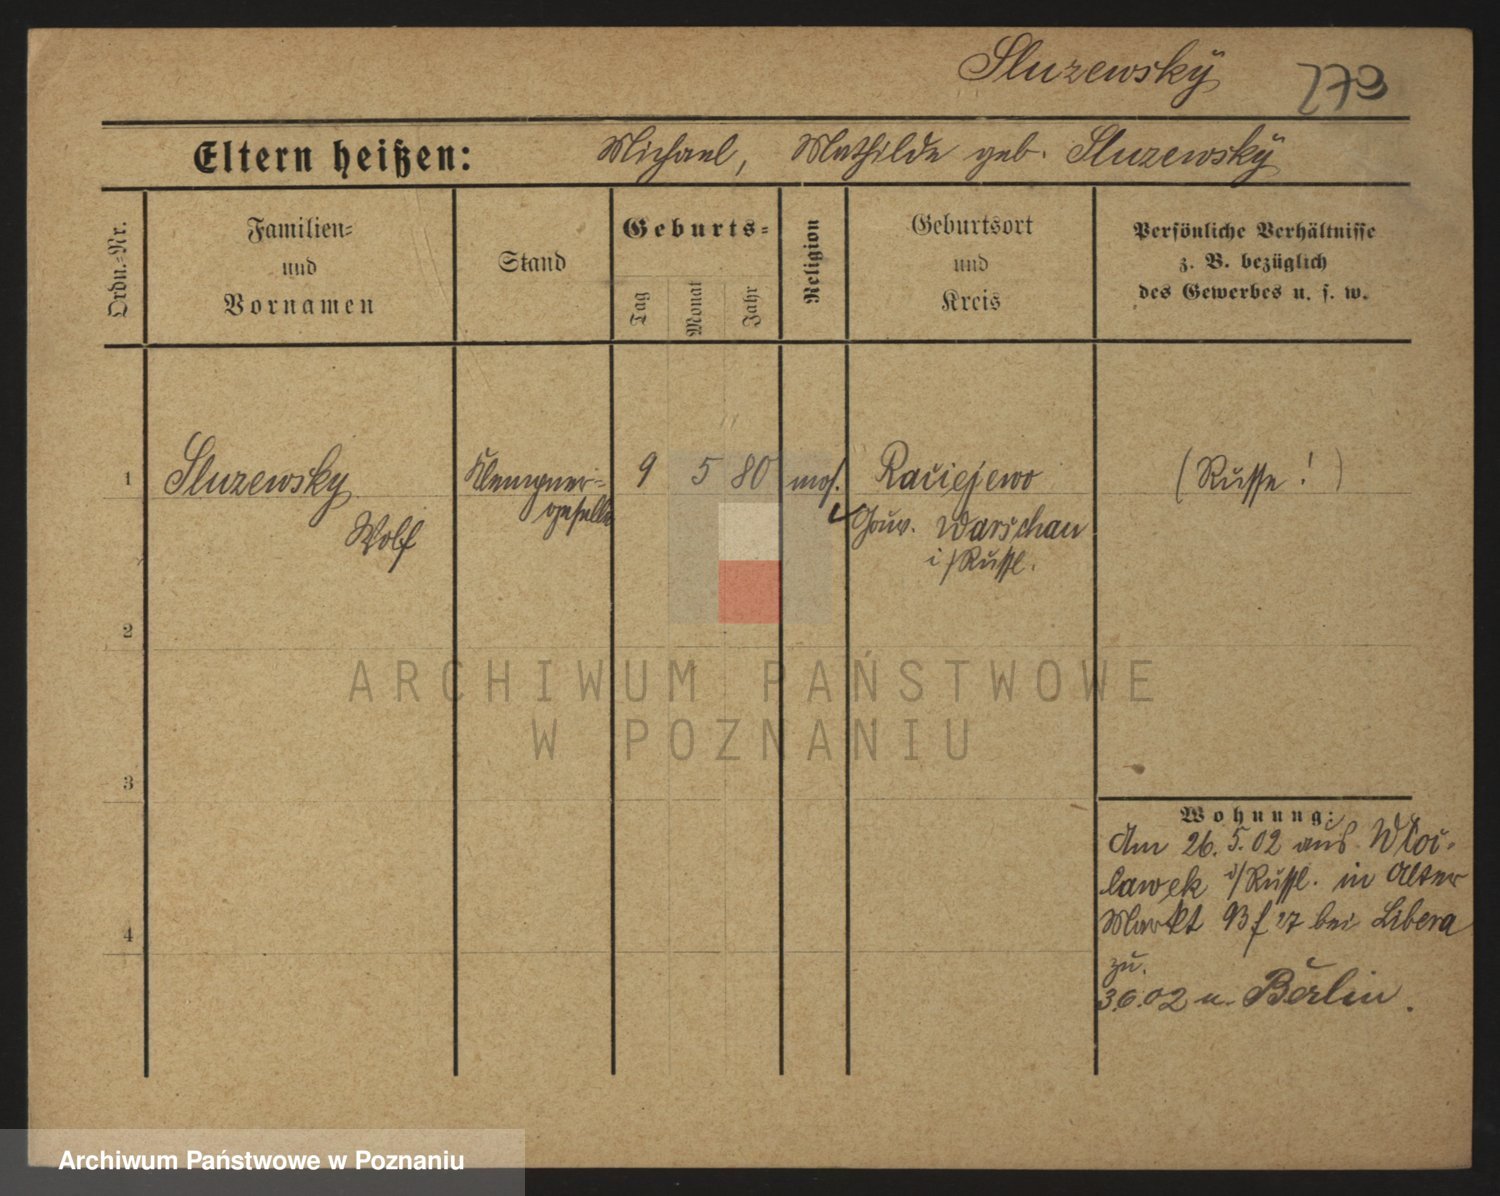 Sluzewsky 273
Eltern heißen: Michael, Mathilde geb. Sluzewsky
Ordn.-Nr.
Familien=
und
Vornamen
Stand
Geburts=
Tag
Monat
Jahr
Religion
Geburtsort
und
Kreis
Persönliche Verhältnisse
z. B. bezüglich
des Gewerbes u. s. w.
1 Sluzewsky Klempner= 9 5 80 mos. Raciejewo (Russe!)
Wolf geselle Gouv. Warschau
i/Russl.
2
ARCHIWUM PAŃSTWOWE
W POZNANIU
3
Wohnung:
Am 26.5.02 aus Wloc-
lawek i/Russl. in Alter
Markt 93 f 27 bei Libera
zu.
3.6.02 n. Berlin.
4
Archiwum Państwowe w Poznaniu